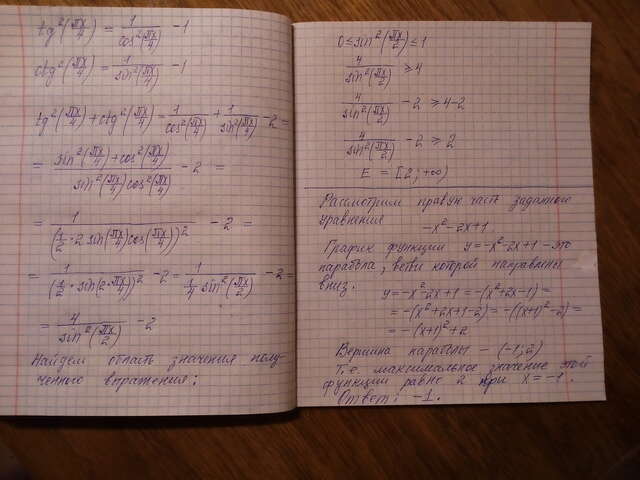 tg²(πx/4) = 1/cos²(πx/4) - 1
ctg²(πx/4) = 1/sin²(πx/4) - 1
tg²(πx/4) + ctg²(πx/4) = 1/cos²(πx/4) + 1/sin²(πx/4) - 2 =
= (sin²(πx/4) + cos²(πx/4))/(sin²(πx/4) cos²(πx/4)) - 2 =
= 1/(1/2 · 2 sin(πx/4) cos(πx/4))² - 2 =
= 1/(1/2 · sin(2·πx/4))² - 2 = 1/(1/4 · sin²(πx/2)) - 2 =
= 4/sin²(πx/2) - 2
Найдем область значения полу-
ченного выражения:
0 ≤ sin²(πx/2) ≤ 1
4/sin²(πx/2) ≥ 4
4/sin²(πx/2) - 2 ≥ 4-2
4/sin²(πx/2) - 2 ≥ 2
E = [2; +∞)
Рассмотрим правую часть заданного
уравнения
-x²-2x+1
График функции y=-x²-2x+1 - это
парабола, ветви которой направлены
вниз.
y=-x²-2x+1 = -(x²+2x-1) =
= -(x²+2x+1-2) = -((x+1)²-2) =
= -(x+1)²+2
Вершина параболы - (-1;2)
Т.е. максимальное значение этой
функции равно 2 при x=-1.
Ответ: -1.